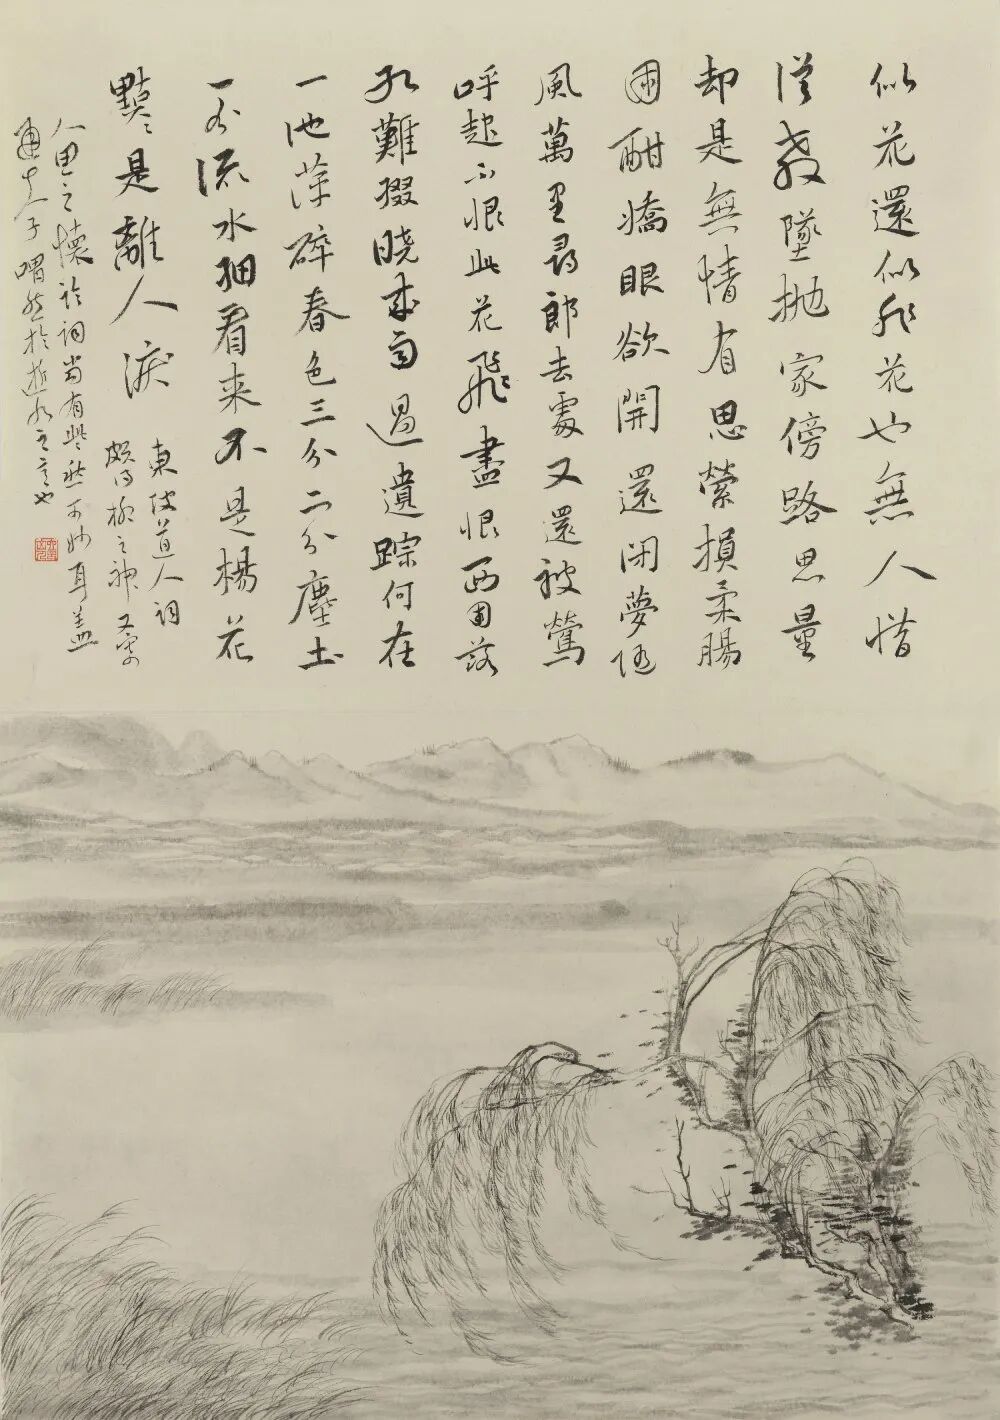 似花還似非花也無人惜
從教墜拋家傍路思量
却是無情有思縈損柔腸
困酣嬌眼欲開還閉夢隨
風萬里尋郎去處又還被鶯
呼起不恨此花飛盡恨西園落
紅難掇曉來雨過遺踪何在
一池萍碎春色三分二分塵土
一分流水細看来不是楊花
點點是離人淚
東坡道人詞
頗得柳之神
人思之懷於詞尚有耳蓋
子喟然於逝水之言也